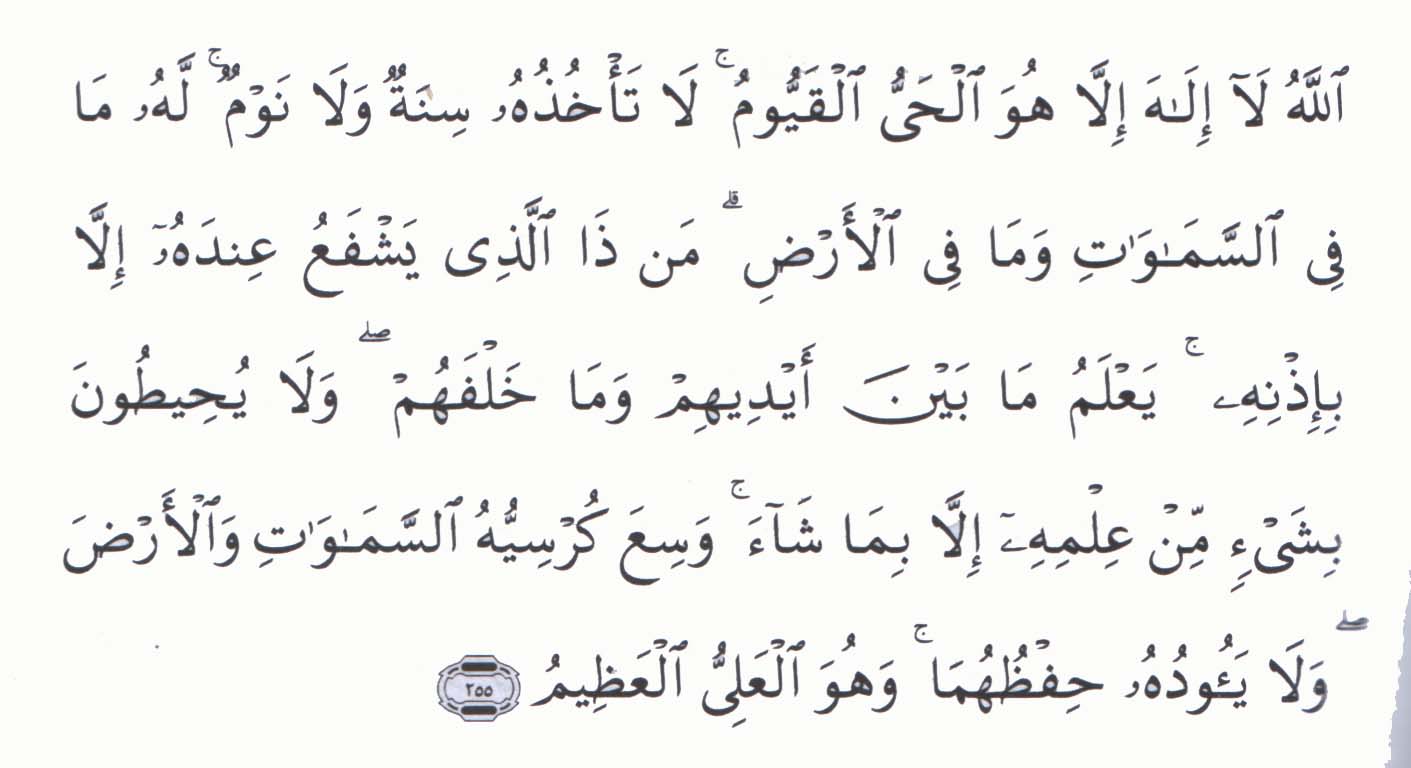 ٱللَّهُ لَآ إِلَـٰهَ إِلَّا هُوَ ٱلْحَىُّ ٱلْقَيُّومُ ۚ لَا تَأْخُذُهُۥ سِنَةٌ وَلَا نَوْمٌ ۚ لَّهُۥ مَا
فِى ٱلسَّمَـٰوَٰتِ وَمَا فِى ٱلْأَرْضِ ۗ مَن ذَا ٱلَّذِى يَشْفَعُ عِندَهُۥٓ إِلَّا
بِإِذْنِهِۦ ۚ يَعْلَمُ مَا بَيْنَ أَيْدِيهِمْ وَمَا خَلْفَهُمْ ۖ وَلَا يُحِيطُونَ
بِشَىْءٍ مِّنْ عِلْمِهِۦٓ إِلَّا بِمَا شَآءَ ۚ وَسِعَ كُرْسِيُّهُ ٱلسَّمَـٰوَٰتِ وَٱلْأَرْضَ
ۖ وَلَا يَـُٔودُهُۥ حِفْظُهُمَا ۚ وَهُوَ ٱلْعَلِىُّ ٱلْعَظِيمُ ٢٥٥